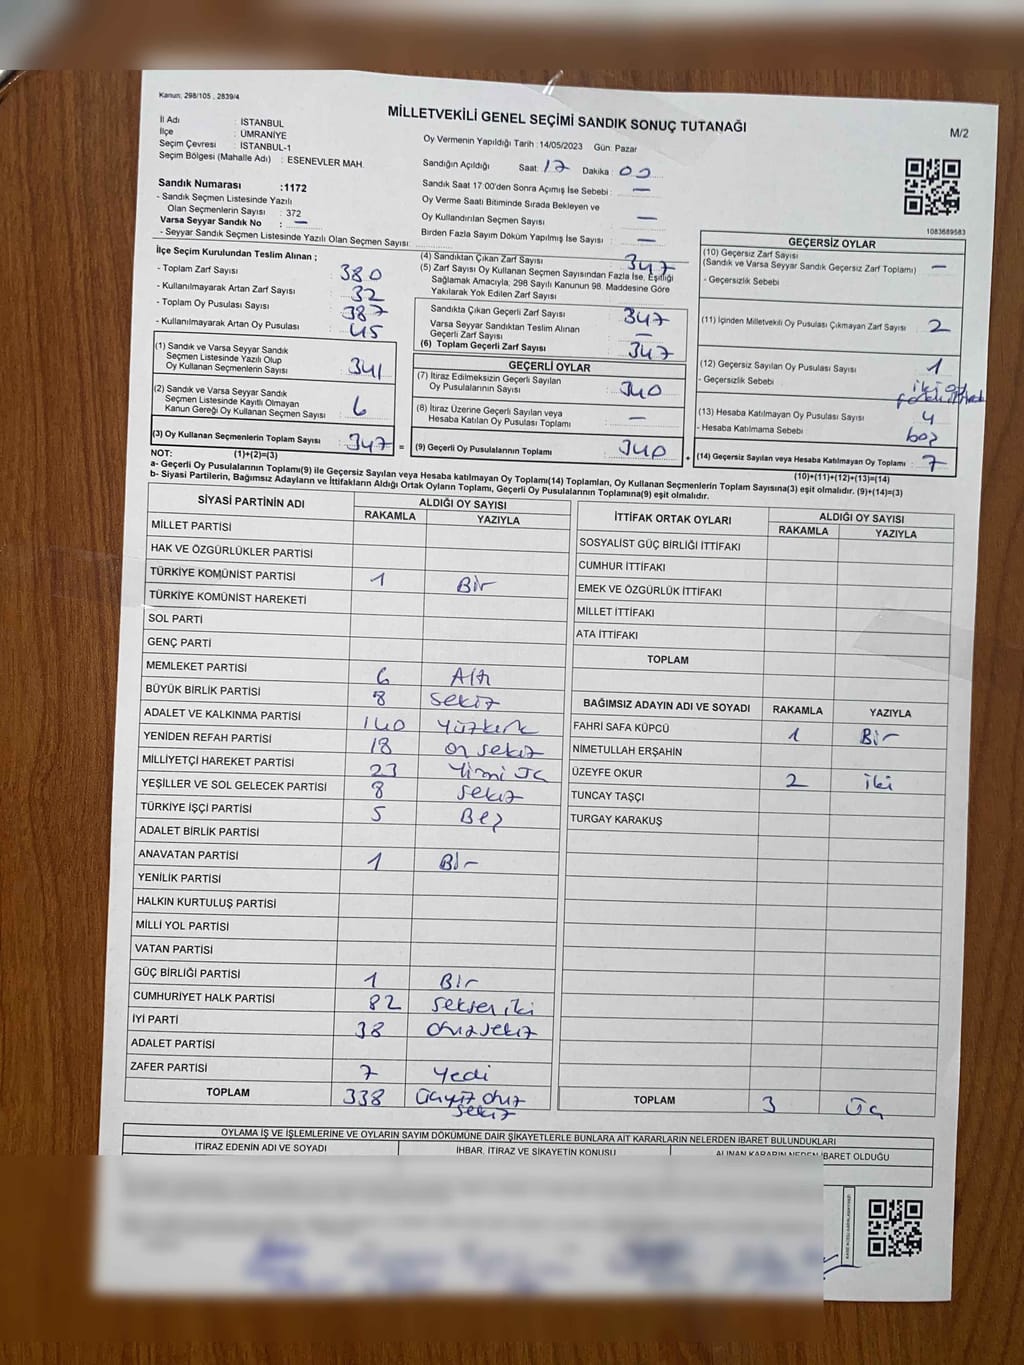 Kanun; 298/105 , 2839/4
MİLLETVEKİLİ GENEL SEÇİMİ SANDIK SONUÇ TUTANAĞI
M/2
İl Adı : İSTANBUL
İlçe : ÜMRANİYE
Seçim Çevresi : İSTANBUL-1
Seçim Bölgesi (Mahalle Adı) : ESENEVLER MAH.
Sandık Numarası :1172
- Sandık Seçmen Listesinde Yazılı
Olan Seçmenlerin Sayısı : 372
Varsa Seyyar Sandık No : —
- Seyyar Sandık Seçmen Listesinde Yazılı Olan Seçmen Sayısı:
Oy Vermenin Yapıldığı Tarih :14/05/2023 Gün: Pazar
Sandığın Açıldığı Saat: 17 Dakika : 00
Sandık Saat 17:00'den Sonra Açılmış İse Sebebi : —
Oy Verme Saati Bitiminde Sırada Bekleyen ve
Oy Kullandırılan Seçmen Sayısı : —
Birden Fazla Sayım Döküm Yapılmış İse Sayısı : —
1083689583
İlçe Seçim Kurulundan Teslim Alınan ;
- Toplam Zarf Sayısı : 380
- Kullanılmayarak Artan Zarf Sayısı : 32
- Toplam Oy Pusulası Sayısı : 387
- Kullanılmayarak Artan Oy Pusulası : 45
(1) Sandık ve Varsa Seyyar Sandık
Seçmen Listesinde Yazılı Olup
Oy Kullanan Seçmenlerin Sayısı : 341
(2) Sandık ve Varsa Seyyar Sandık
Seçmen Listesinde Kayıtlı Olmayan
Kanun Gereği Oy Kullanan Seçmen Sayısı : 6
(3) Oy Kullanan Seçmenlerin Toplam Sayısı : 347 =
(4) Sandıktan Çıkan Zarf Sayısı : 347
(5) Zarf Sayısı Oy Kullanan Seçmen Sayısından Fazla İse, Eşitliği
Sağlamak Amacıyla, 298 Sayılı Kanunun 98. Maddesine Göre
Yakılarak Yok Edilen Zarf Sayısı :
Sandıkta Çıkan Geçerli Zarf Sayısı : 347
Varsa Seyyar Sandıktan Teslim Alınan
Geçerli Zarf Sayısı : —
(6) Toplam Geçerli Zarf Sayısı : 347
GEÇERLİ OYLAR
(7) İtiraz Edilmeksizin Geçerli Sayılan
Oy Pusulalarının Sayısı : 340
(8) İtiraz Üzerine Geçerli Sayılan veya
Hesaba Katılan Oy Pusulası Toplamı : —
(9) Geçerli Oy Pusulalarının Toplamı : 340 +
GEÇERSİZ OYLAR
(10) Geçersiz Zarf Sayısı
(Sandık ve Varsa Seyyar Sandık Geçersiz Zarf Toplamı) : —
- Geçersizlik Sebebi :
(11) İçinden Milletvekili Oy Pusulası Çıkmayan Zarf Sayısı : 2
(12) Geçersiz Sayılan Oy Pusulası Sayısı : 1
- Geçersizlik Sebebi : iki
(13) Hesaba Katılmayan Oy Pusulası Sayısı : 4
- Hesaba Katılmama Sebebi : boş
(14) Geçersiz Sayılan veya Hesaba Katılmayan Oy Toplamı : 7
NOT: (1)+(2)=(3)
(10)+(11)+(12)+(13)=(14)
a- Geçerli Oy Pusulalarının Toplamı(9) ile Geçersiz Sayılan veya Hesaba katılmayan Oy Toplamı(14) Toplamları, Oy Kullanan Seçmenlerin Toplam Sayısına(3) eşit olmalıdır. (9)+(14)=(3)
b- Siyasi Partilerin, Bağımsız Adayların ve İttifakların Aldığı Ortak Oyların Toplamı, Geçerli Oy Pusulalarının Toplamına(9) eşit olmalıdır.
SİYASİ PARTİNİN ADI ALDIĞI OY SAYISI
RAKAMLA YAZIYLA
MİLLET PARTİSİ
HAK VE ÖZGÜRLÜKLER PARTİSİ
TÜRKİYE KOMÜNİST PARTİSİ 1 Bir
TÜRKİYE KOMÜNİST HAREKETİ
SOL PARTİ
GENÇ PARTİ
MEMLEKET PARTİSİ 6 Altı
BÜYÜK BİRLİK PARTİSİ 8 Sekiz
ADALET VE KALKINMA PARTİSİ 140 Yüzkırk
YENİDEN REFAH PARTİSİ 18 on sekiz
MİLLİYETÇİ HAREKET PARTİSİ 23 Yirmi Üç
YEŞİLLER VE SOL GELECEK PARTİSİ 8 Sekiz
TÜRKİYE İŞÇİ PARTİSİ 5 Beş
ADALET BİRLİK PARTİSİ
ANAVATAN PARTİSİ 1 Bir
YENİLİK PARTİSİ
HALKIN KURTULUŞ PARTİSİ
MİLLİ YOL PARTİSİ
VATAN PARTİSİ
GÜÇ BİRLİĞİ PARTİSİ 1 Bir
CUMHURİYET HALK PARTİSİ 82 seksen iki
İYİ PARTİ 38 otuzsekiz
ADALET PARTİSİ
ZAFER PARTİSİ 7 Yedi
TOPLAM 338 Üçyüz otuz
sekiz
İTTİFAK ORTAK OYLARI ALDIĞI OY SAYISI
RAKAMLA YAZIYLA
SOSYALİST GÜÇ BİRLİĞİ İTTİFAKI
CUMHUR İTTİFAKI
EMEK VE ÖZGÜRLÜK İTTİFAKI
MİLLET İTTİFAKI
ATA İTTİFAKI
TOPLAM
BAĞIMSIZ ADAYIN ADI VE SOYADI RAKAMLA YAZIYLA
FAHRİ SAFA KÜPCÜ 1 Bir
NİMETULLAH ERŞAHİN
ÜZEYFE OKUR 2 iki
TUNCAY TAŞÇI
TURGAY KARAKUŞ
TOPLAM 3 Üç
OYLAMA İŞ VE İŞLEMLERİNE VE OYLARIN SAYIM DÖKÜMÜNE DAİR ŞİKAYETLERLE BUNLARA AİT KARARLARIN NELERDEN İBARET BULUNDUKLARI
İTİRAZ EDENİN ADI VE SOYADI İHBAR, İTİRAZ VE ŞİKAYETİN KONUSU ALINAN KARARIN NEDEN İBARET OLDUĞU